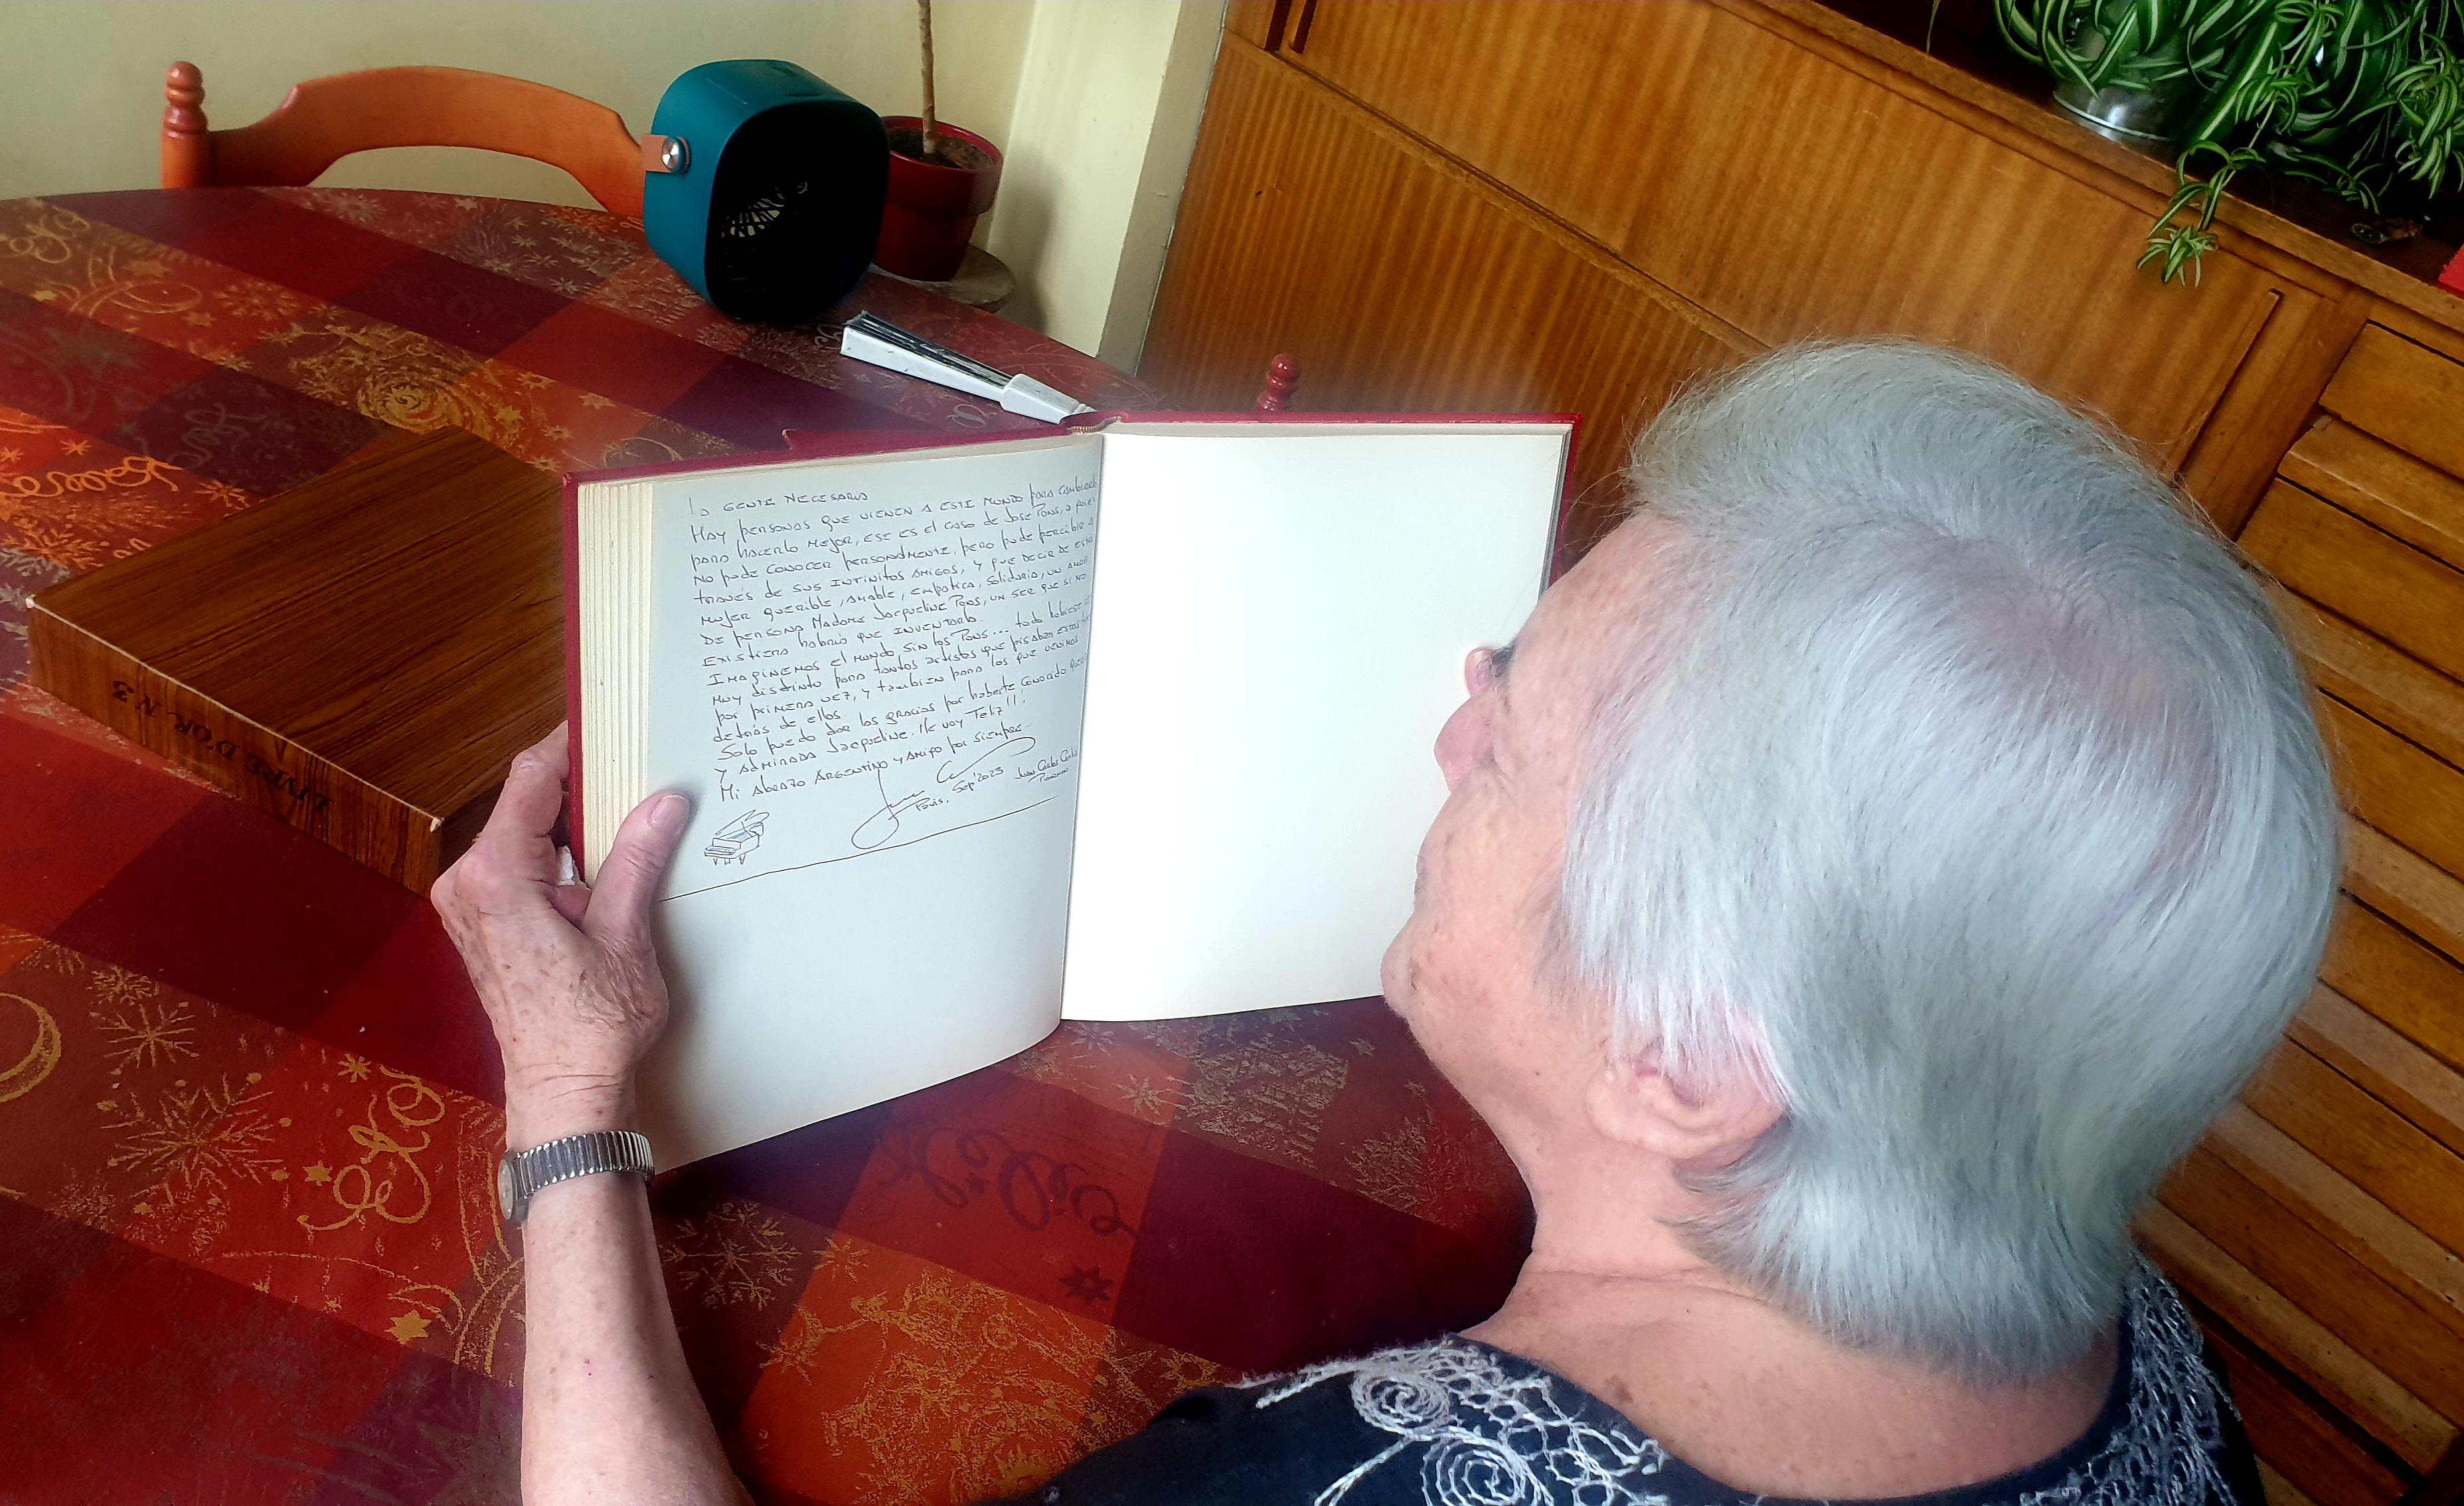 La GENTE NECESARIA
HAY PERSONAS QUE VIENEN A ESTE MUNDO para cambiarlo
para hacerlo mejor, ESE ES el caso de Jose Pons, a
No pude CONOCER PERSONALMENTE, pero pude percibir a
través DE SUS INFINITOS AMIGOS, Y QUE DECIR DE ESTA
MUJER QUERIBLE, AMABLE, EMPATICA, Solidaria, UN AMOR
DE PERSONA MADAME Jacqueline Pons, UN SER QUE SI NO
EXISTIERA habría QUE INVENTARLA.
IMAGINEMOS el MUNDO SIN los Pons... todo hubiese
MUY distinto para tantos artistas que pisaban estas
por primera vez, y tambien para los que venimos
detrás de ellos.
Solo puedo dar las gracias por haberte conocido
Y ADMIRADA Jacqueline. Me voy Feliz!!
Mi Abrazo ARGENTINO y AMIGO por siempre
París, Sep'2023 Juan Carlos
LIVRE D'OR N 3